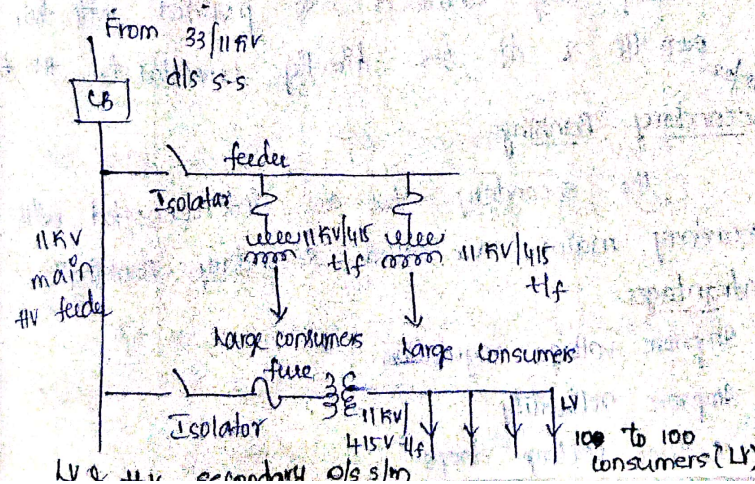 From 33/11KV
d/s s.s
CB
feeder
Isolator
11KV
main
HV feeder
11KV/415
t/f
11KV/415
t/f
Large consumers
Large consumers
fuse
Isolator
11KV/
415V t/f
LV
to 100
consumers (LV)
LV & HV secondary d/s s/m